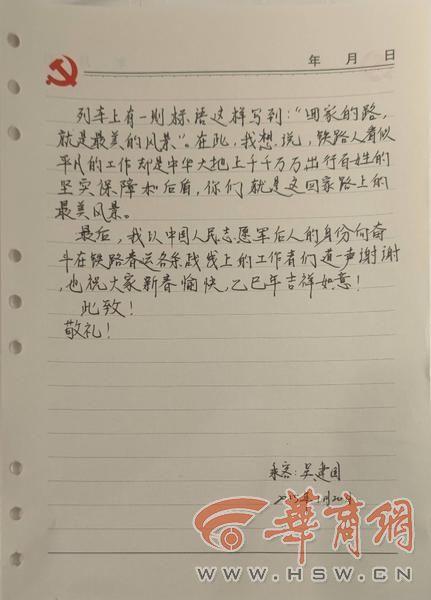 年 月 日
列车上有一则标语这样写到：“回家的路，
就是最美的风景”。在此，我想说，铁路人看似
平凡的工作却是中华大地上千千万万出行百姓的
坚实保障和后盾，你们就是这回家路上的
最美风景。
最后，我以中国人民志愿军后人的身份向奋
斗在铁路春运各条战线上的工作者们道一声谢谢
，也祝大家新春愉快，乙巳年吉祥如意！
此致！
敬礼！
乘客：吴建国
2025年1月20日
华商网
WWW.HSW.CN